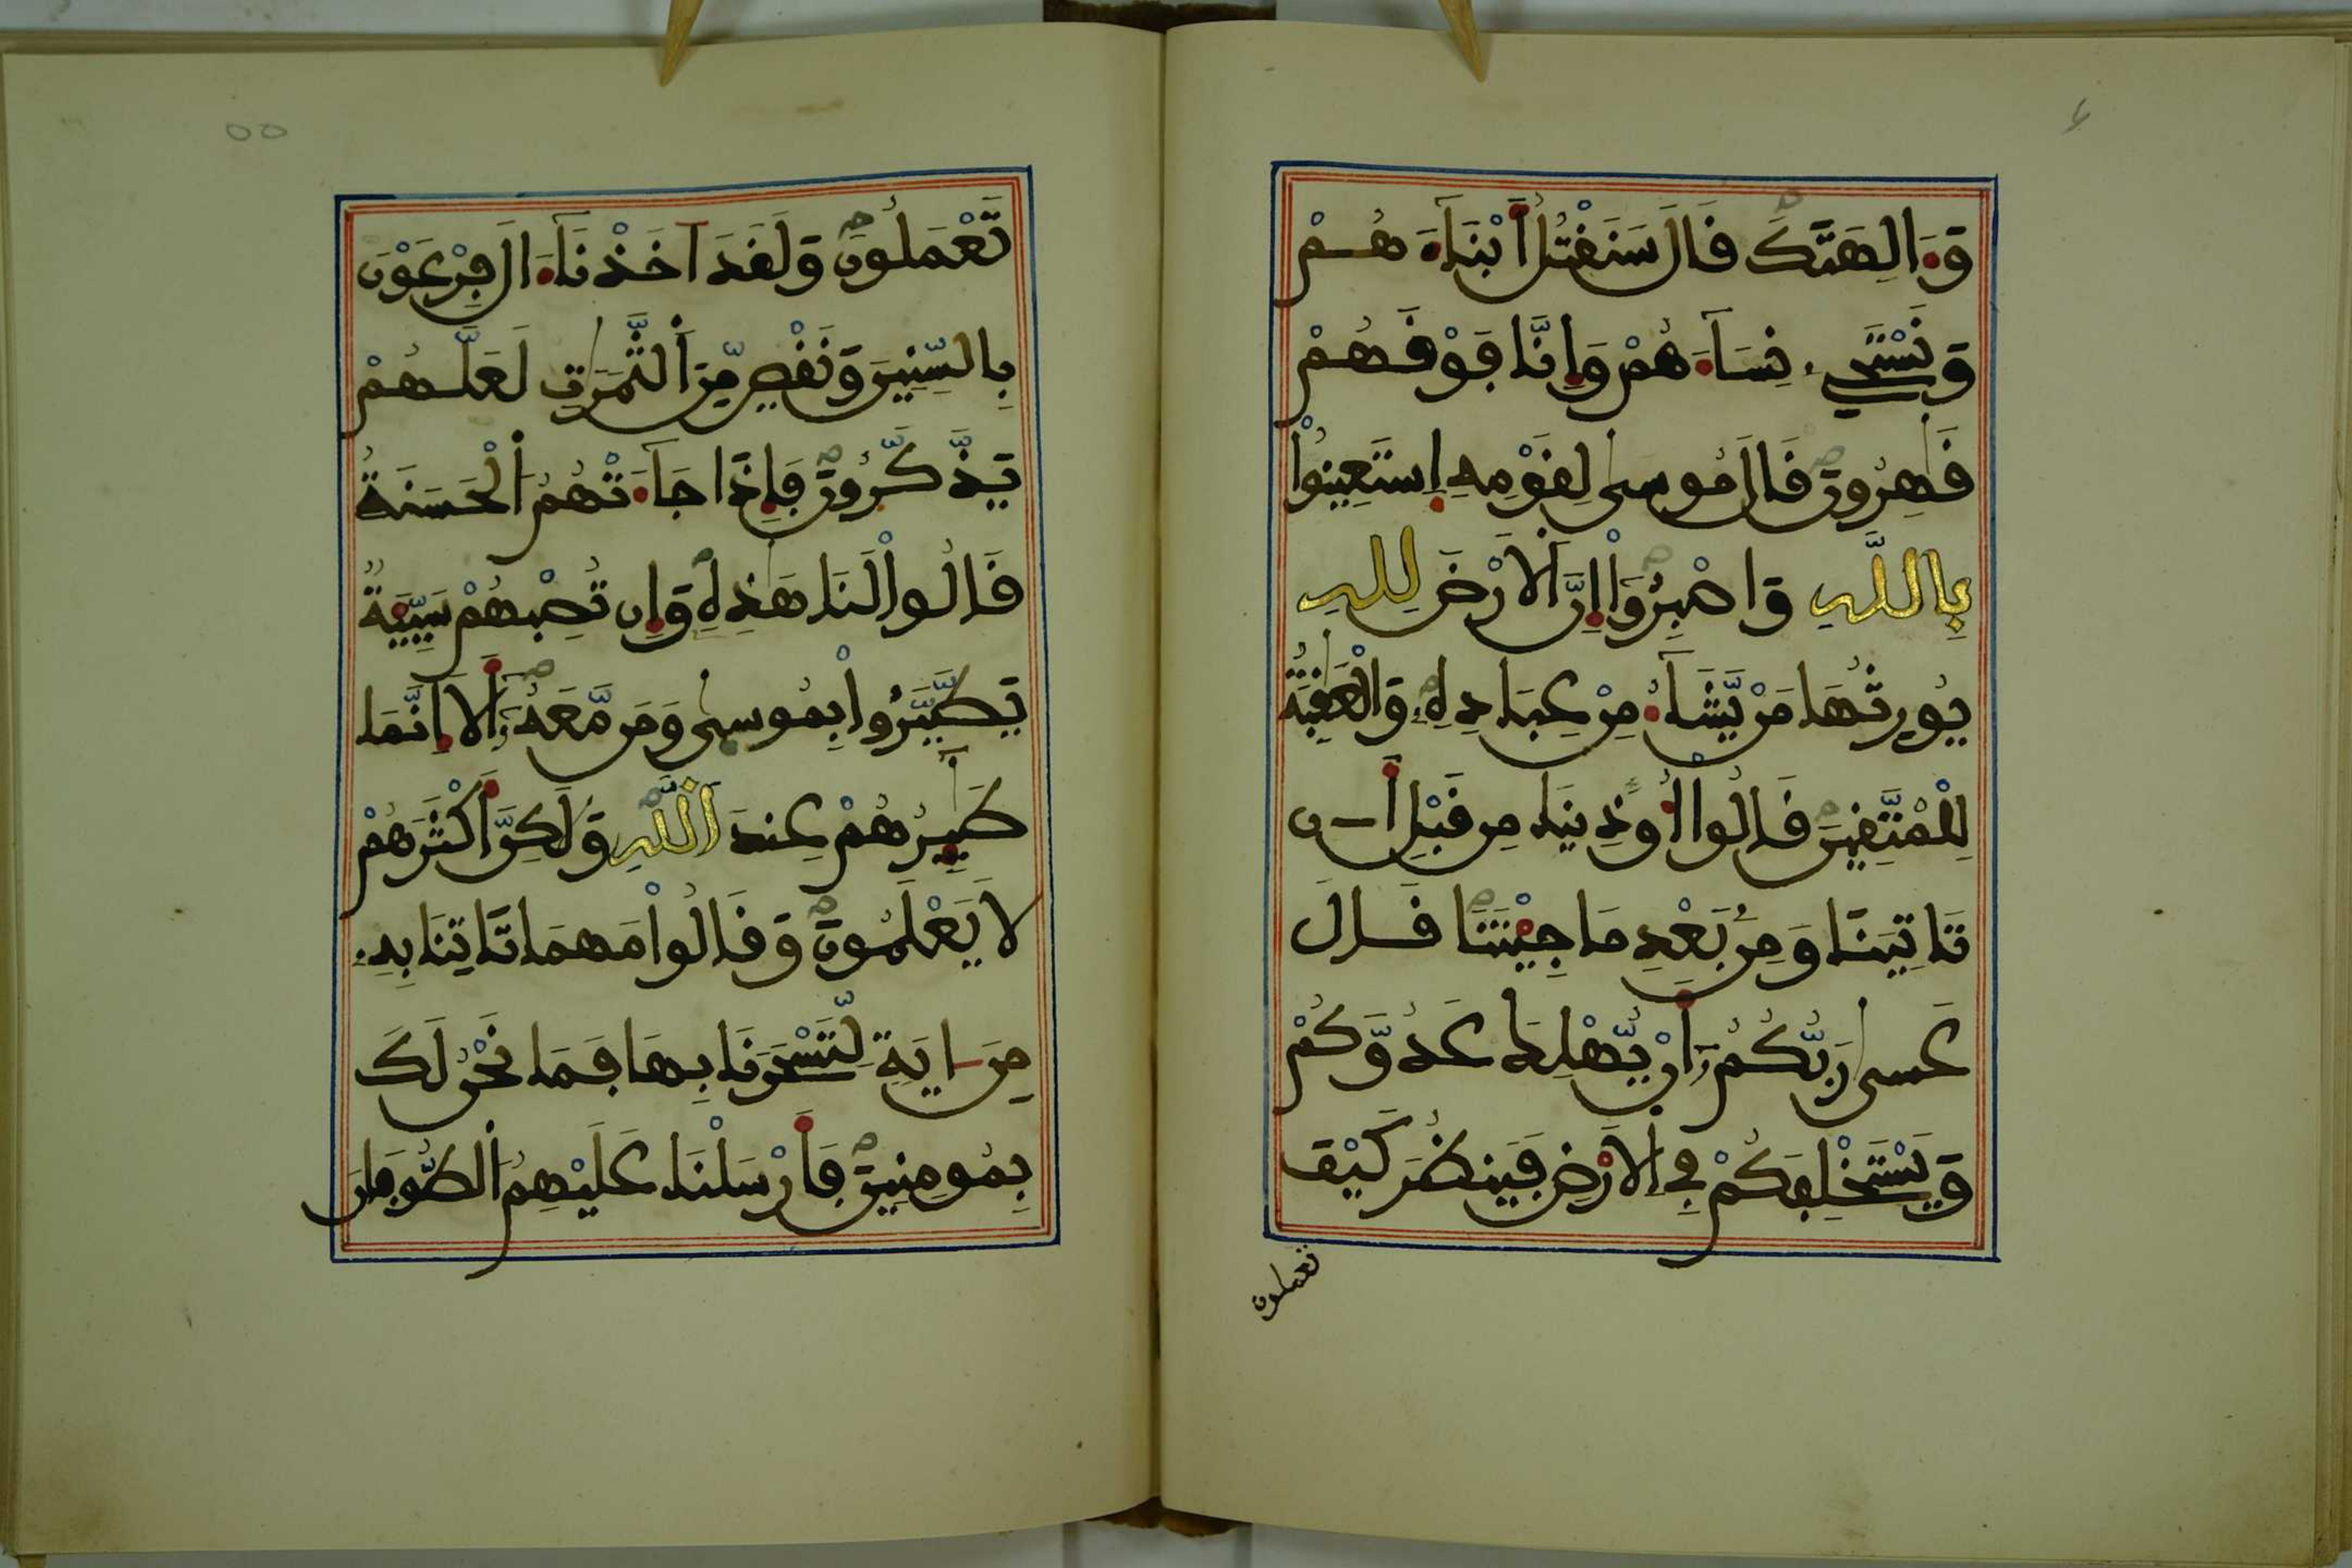 وَءَالِهَتَكَ قَالَ سَنَقْتُلُ أَبْنَآءَهُمْ
وَنَسْتَحْيِۦ نِسَآءَهُمْ وَإِنَّا فَوْقَهُمْ
قَٰهِرُونَ قَالَ مُوسىٰ لِقَوْمِهِ اِسْتَعِينُواْ
بِاللَّهِ وَاصْبِرُوٓاْ إِنَّ اَلَارْضَ لِلهِ
يُورِثُهَا مَنْ يَّشَآءُ مِنْ عِبَادِهِۦ وَالْعَٰقِبَةُ
لِلْمُتَّقِينَ قَالُوٓاْ أُوذِينَا مِن قَبْلِ أَن
تَاتِيَنَا وَمِنۢ بَعْدِ مَا جِئْتَنَا قَالَ
عَسىٰ رَبُّكُمُۥٓ أَنْ يُّهْلِكَ عَدُوَّكُمْ
وَيَسْتَخْلِفَكُمْ فِي اِلَارْضِ فَيَنظُرَ كَيْفَ
تعملون
تَعْمَلُونَ وَلَقَدَ اخَذْنَآ ءَالَ فِرْعَوْنَ
بِالسِّنِينَ وَنَقْصٍ مِّنَ اَلثَّمَرَٰتِ لَعَلَّهُمْ
يَذَّكَّرُونَ فَإِذَا جَآءَتْهُمُ اُلْحَسَنَةُ
قَالُواْ لَنَا هَٰذِهِۦ وَإِن تُصِبْهُمْ سَيِّئَةٌ
يَطَّيَّرُواْ بِمُوسىٰ وَمَن مَّعَهُۥٓ أَلَآ إِنَّمَا
طَٰٓئِرُهُمْ عِندَ اَللَّهِ وَلَٰكِنَّ أَكْثَرَهُمْ
لَا يَعْلَمُونَ وَقَالُواْ مَهْمَا تَاتِنَا بِهِۦ
مِنَ ايَةٍ لِّتَسْحَرَنَا بِهَا فَمَا نَحْنُ لَكَ
بِمُومِنِينَ فَأَرْسَلْنَا عَلَيْهِمُ اُلطُّوفَانَ